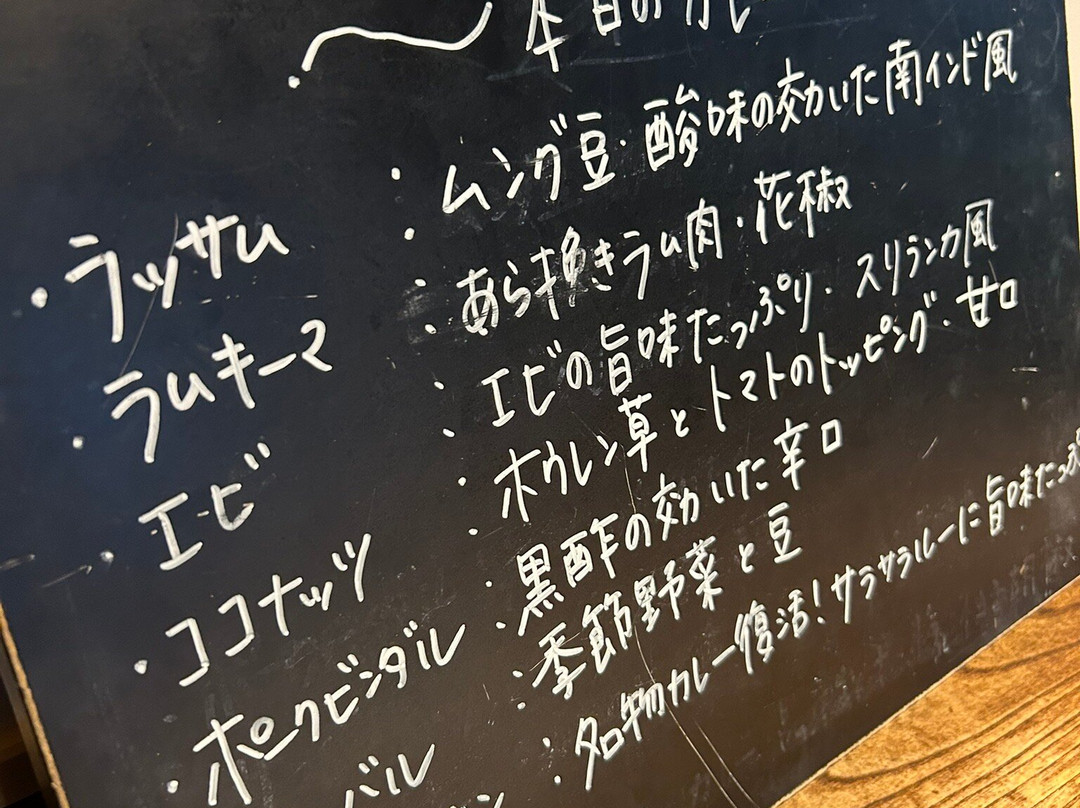 本日のカレー
・ラッサム : ムング豆・酸味の効いた南インド風
・ラムキーマ : あら挽きラム肉・花椒
・エビ : エビの旨味たっぷり・スリランカ風
・ココナッツ : ホウレン草とトマトのトッピング・甘口
・ポークビンダル : 黒酢の効いた辛口
バル : 季節野菜と豆
: 名物カレー復活！サラサラルーに旨味たっぷ